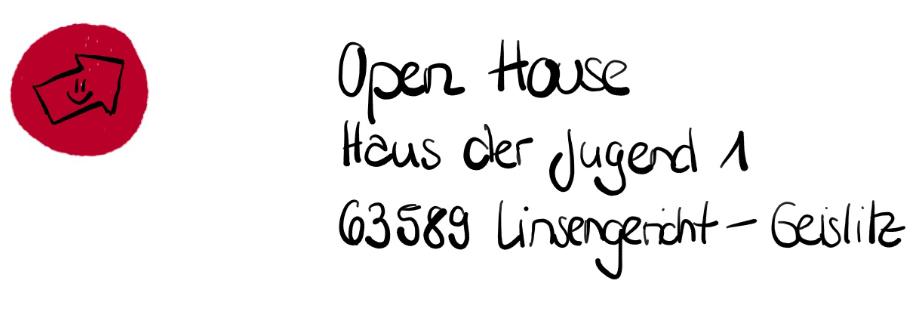 Open House
Haus der Jugend 1
63589 Linsengericht - Geislitz